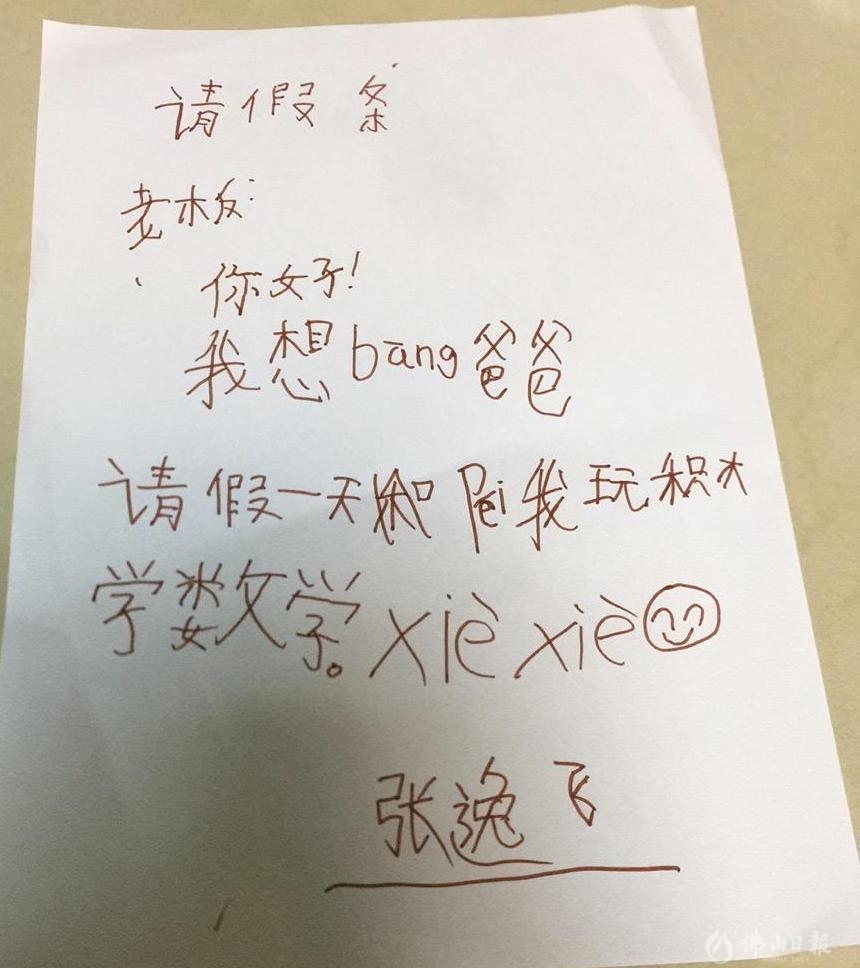 请假条
老板:
你好!
我想bāng爸爸
请假一天和Péi我玩积木
学数学。xiè xiè
张逸飞
佛山日報